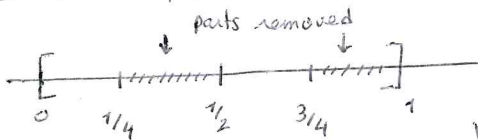 parts removed
0 1/4 1/2 3/4 1